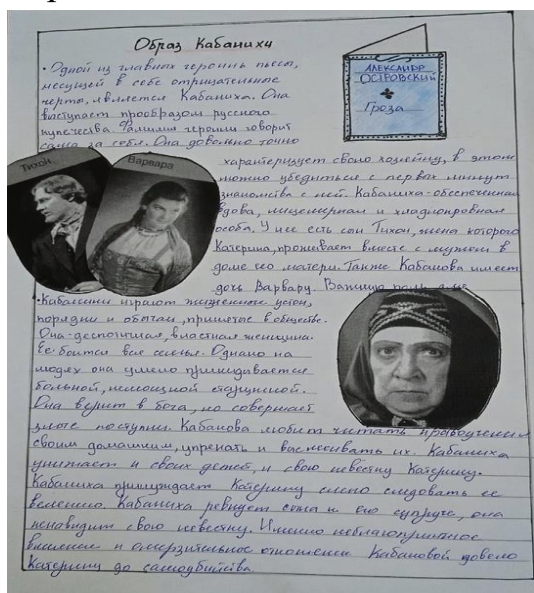 Образ Кабанихи
• Одной из главных героинь пьесы,
несущей в себе отрицательные
черты, является Кабаниха. Она
выступает прообразом русского
купечества. Фамилия героини говорит
сама за себя. Она довольно точно
АЛЕКСАНДР
ОСТРОВСКИЙ
Гроза
Тихон
Варвара
характеризует свою хозяйку, в этом
можно убедиться с первых минут
знакомства с ней. Кабаниха - обеспеченная
вдова, лицемерная и хладнокровная
особа. У нее есть сын Тихон, жена которого
Катерина, проживает вместе с мужем в
доме его матери. Также Кабанова имеет
дочь Варвару. Важную роль для
• Кабанихи играют жизненные устои,
порядки и обычаи, принятые в обществе.
Она - деспотичная, властная женщина.
Ее боится вся семья. Однако на
людях она умело прикидывается
больной, немощной старушкой.
Она верит в бога, но совершает
злые поступки. Кабанова любит читать нравоучения
своим домашним, упрекать и высмеивать их. Кабаниха
унижает и своих детей, и свою невестку Катерину.
Кабаниха принуждает Катерину слепо следовать ее
велению. Кабаниха ревнует сына к его супруге, она
ненавидит свою невестку. Именно неблагоприятное
влияние и омерзительное отношение Кабановой довело
Катерину до самоубийства.